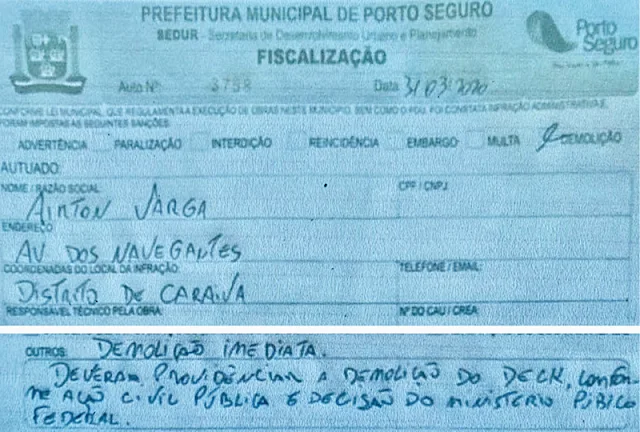 PREFEITURA MUNICIPAL DE PORTO SEGURO
SEDUR - Secretaria de Desenvolvimento Urbano e Planejamento
Porto Seguro
FISCALIZAÇÃO
Auto Nº 3758 Data 31/03/2020
CONFORME LEI MUNICIPAL, QUE REGULAMENTA A EXECUÇÃO DE OBRAS NESTE MUNICÍPIO, BEM COMO O PDU, FOI CONSTATA INFRAÇÃO ADMINISTRATIVA E,
FORAM IMPOSTAS AS SEGUINTES SANÇÕES:
ADVERTÊNCIA PARALIZAÇÃO INTERDIÇÃO REINCIDÊNCIA EMBARGO MULTA DEMOLIÇÃO
AUTUADO:
NOME / RAZÃO SOCIAL CPF / CNPJ
AIRTON VARGA
ENDEREÇO
AV. DOS NAVEGANTES
COORDENADAS DO LOCAL DA INFRAÇÃO: TELEFONE / EMAIL:
DISTRITO DE CARAIVA
RESPONSÁVEL TÉCNICO PELA OBRA: Nº DO CAU / CREA:
OUTROS: DEMOLIÇÃO IMEDIATA.
DEVERAM PROVIDÊNCIAR A DEMOLIÇÃO DO DECK, CONFOR
ME AÇÃO CIVIL PÚBLICA E DECISÃO DO MINISTERIO PÚBICO
FEDERAL.